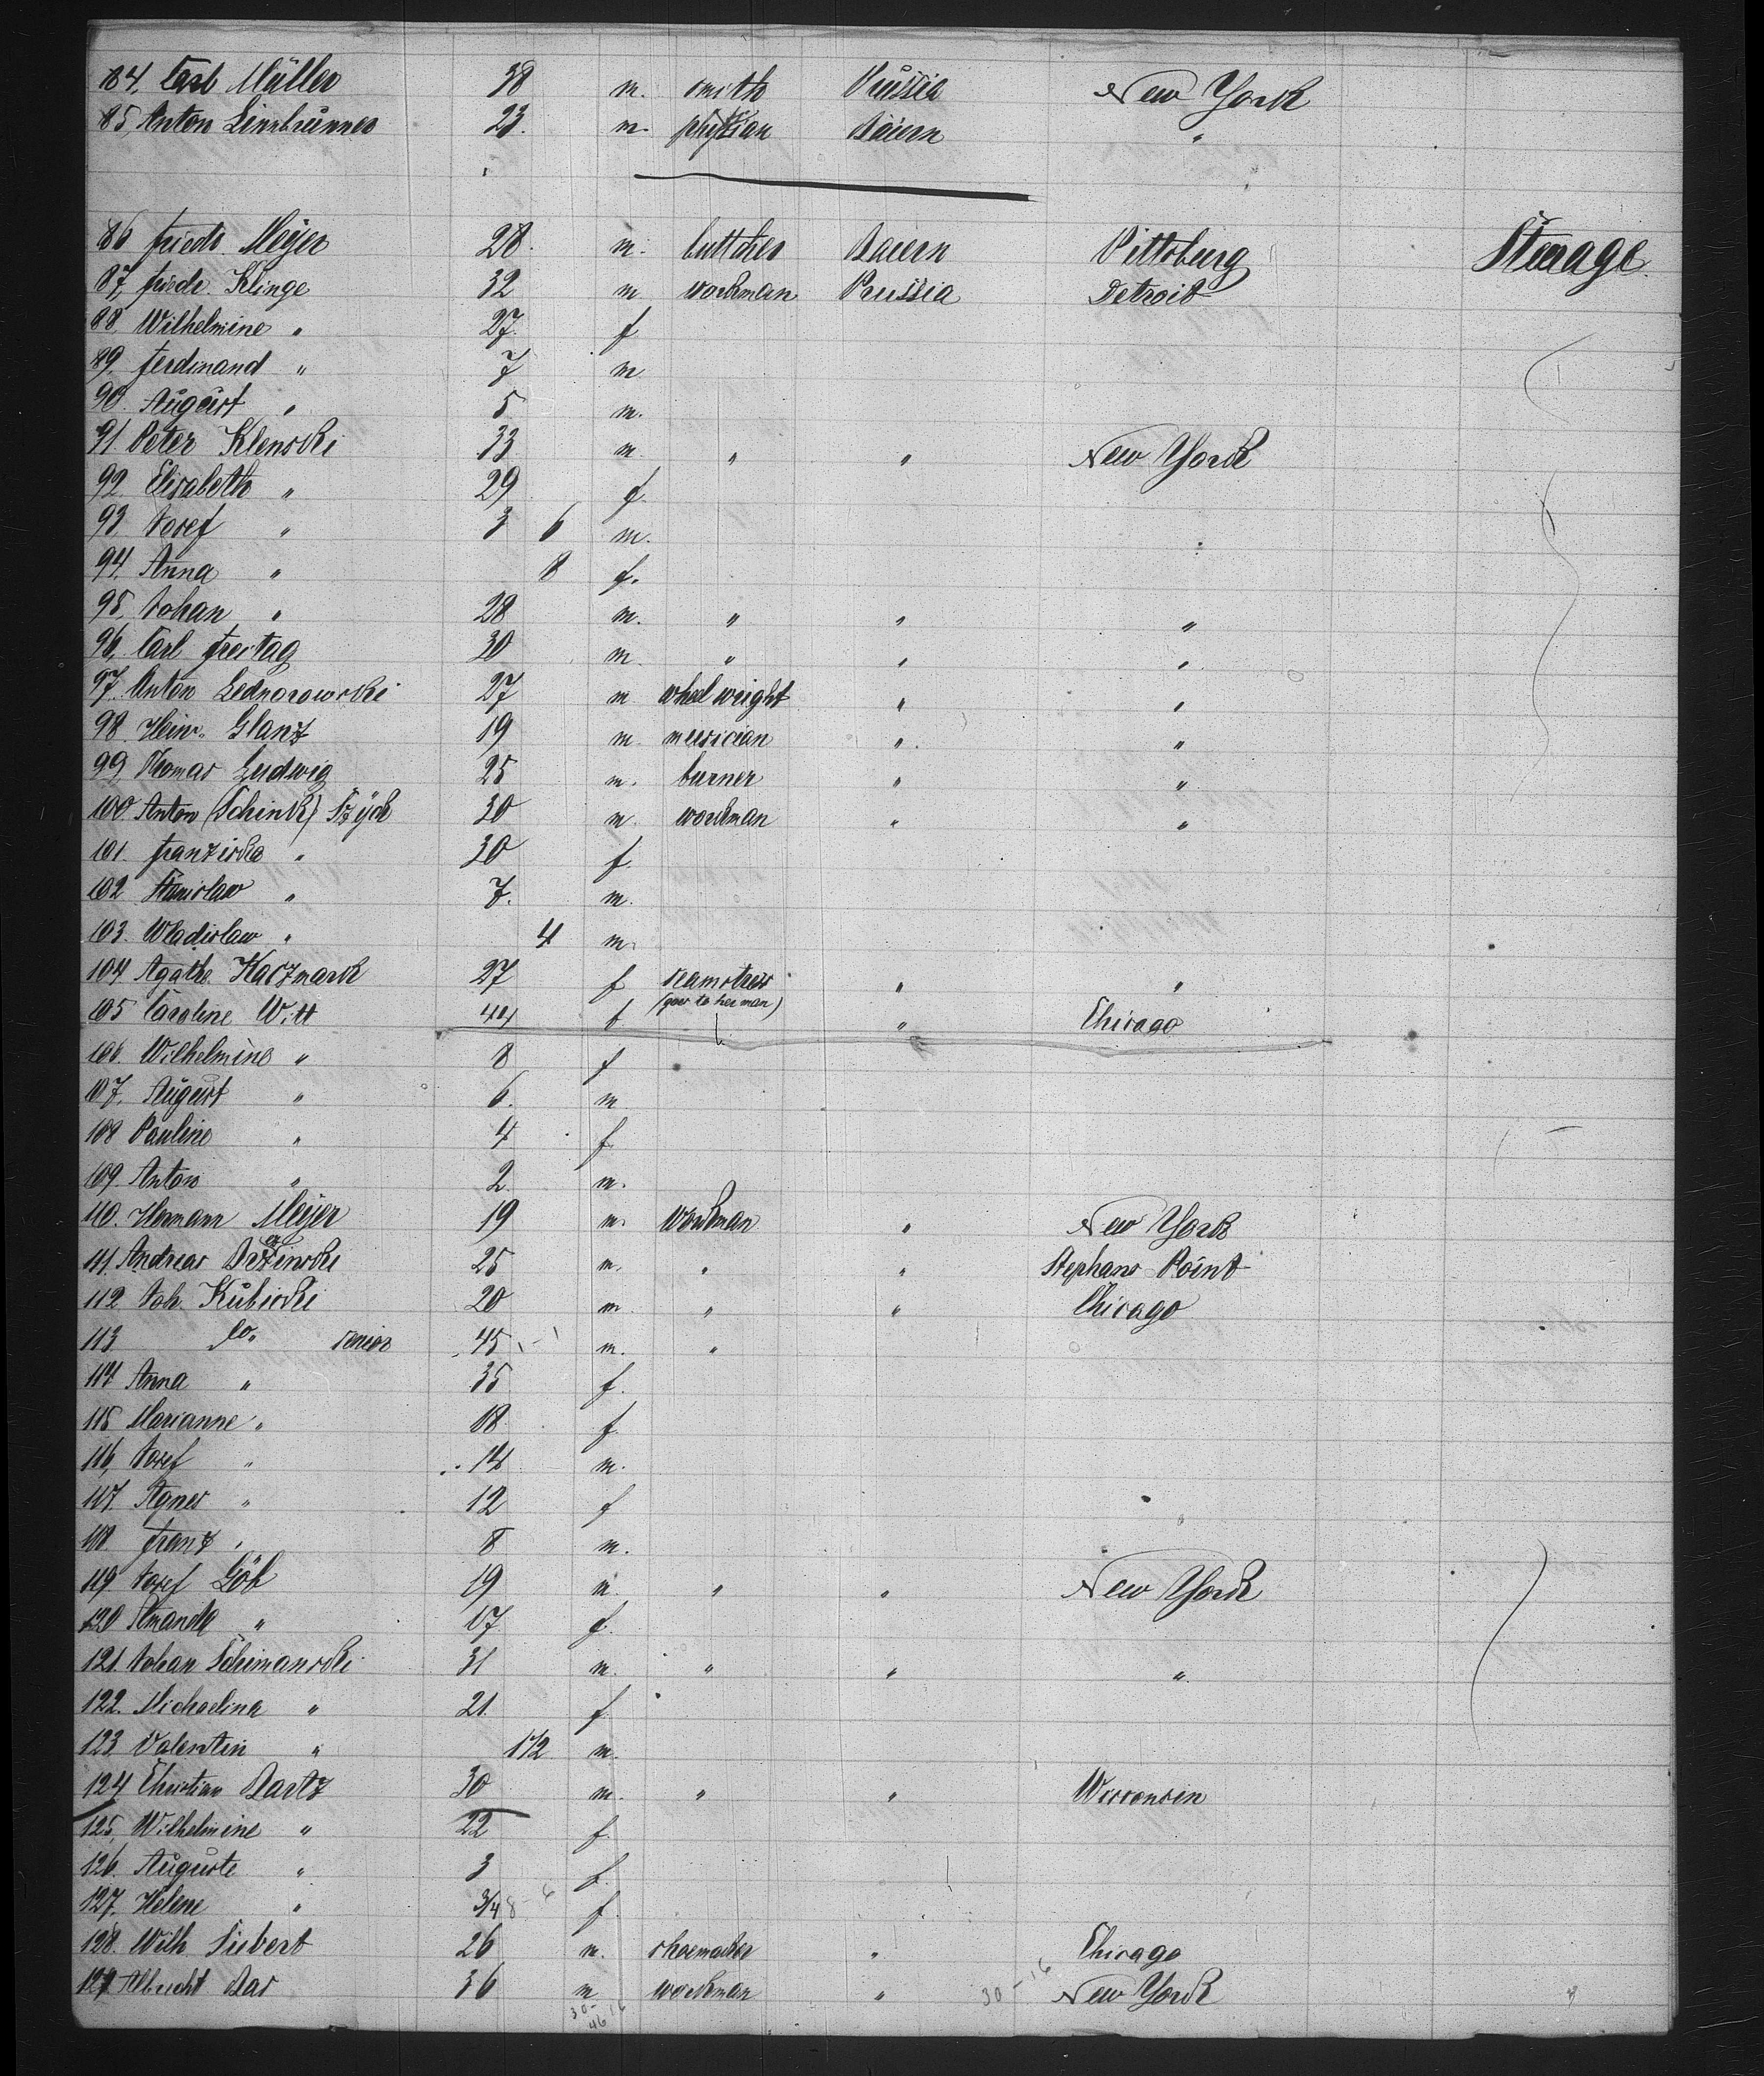 84. Carl Müller 38 m. smith Prussia New York
85. Anton Linnbrunner 23. m. physian Baiern "
86 Friedr. Meÿer 28. m. buttcher Baiern Pittsburg Steerage.
87, Friedr. Klinge 32 m workman Prussia Detroit
88. Wilhelmine " 27. f
89. Ferdinand " 7 m
90. August " 5 m.
91. Peter Klenski 33 m " " New York
92. Elisabeth " 29 f.
93. Josef " 3 6 m.
94. Anna " 8 f.
95. Johan " 28 m. " " "
96. Carl Freitag 30 m. " " "
97. Anton Lednorowski 27 m wheelwright " "
98. Heinr. Glanz 19 m. musician " "
99. Thomas Ludwig 25 m. burner " "
100. Anton (Schink) Szÿck 30 m. workman " "
101. Franziska " 30 f
102 Stanislaw " 7. m.
103. Wladislaw " 4 m.
104 Agathe Kaczmarek 27 f seamstress " "
105 Caroline Witt 44 f (goes to her man) " Chicago
106. Wilhelmine " 8 f
107. August " 6. m
108 Pauline " 4 f
109. Anton " 2. m.
110. Hermann Meÿer 19 m. workman " New York
111. Andreas 25 m. " " Stephans Point
112. Joh. Kubiski 20 m. " " Chicago
113. Do. senior 45 m. "
114 Anna " 35 f.
115 Marianne " 18 f.
116, Josef " 14 m.
117. Agnes " 12 f
118. Franz " 8 m.
119 Josef Göb 19 m. " " New York
120 Amanda " 17 f.
121. Johan Schimanski 31 m. " " "
122. Michaelina " 21. f
123. Valentin " 1 1/2 m.
124 Christian Bartz 30 m. " " Wisconsin
125, Wilhelmine " 22 f.
126. Auguste " 3 f.
127. Helene " 3/4 8-6 f
128. Wilh. Siebert 26 m. shoemaker " Chicago
129 Albrecht Bar 36 m workman " 30-16 New York
30-
46 16